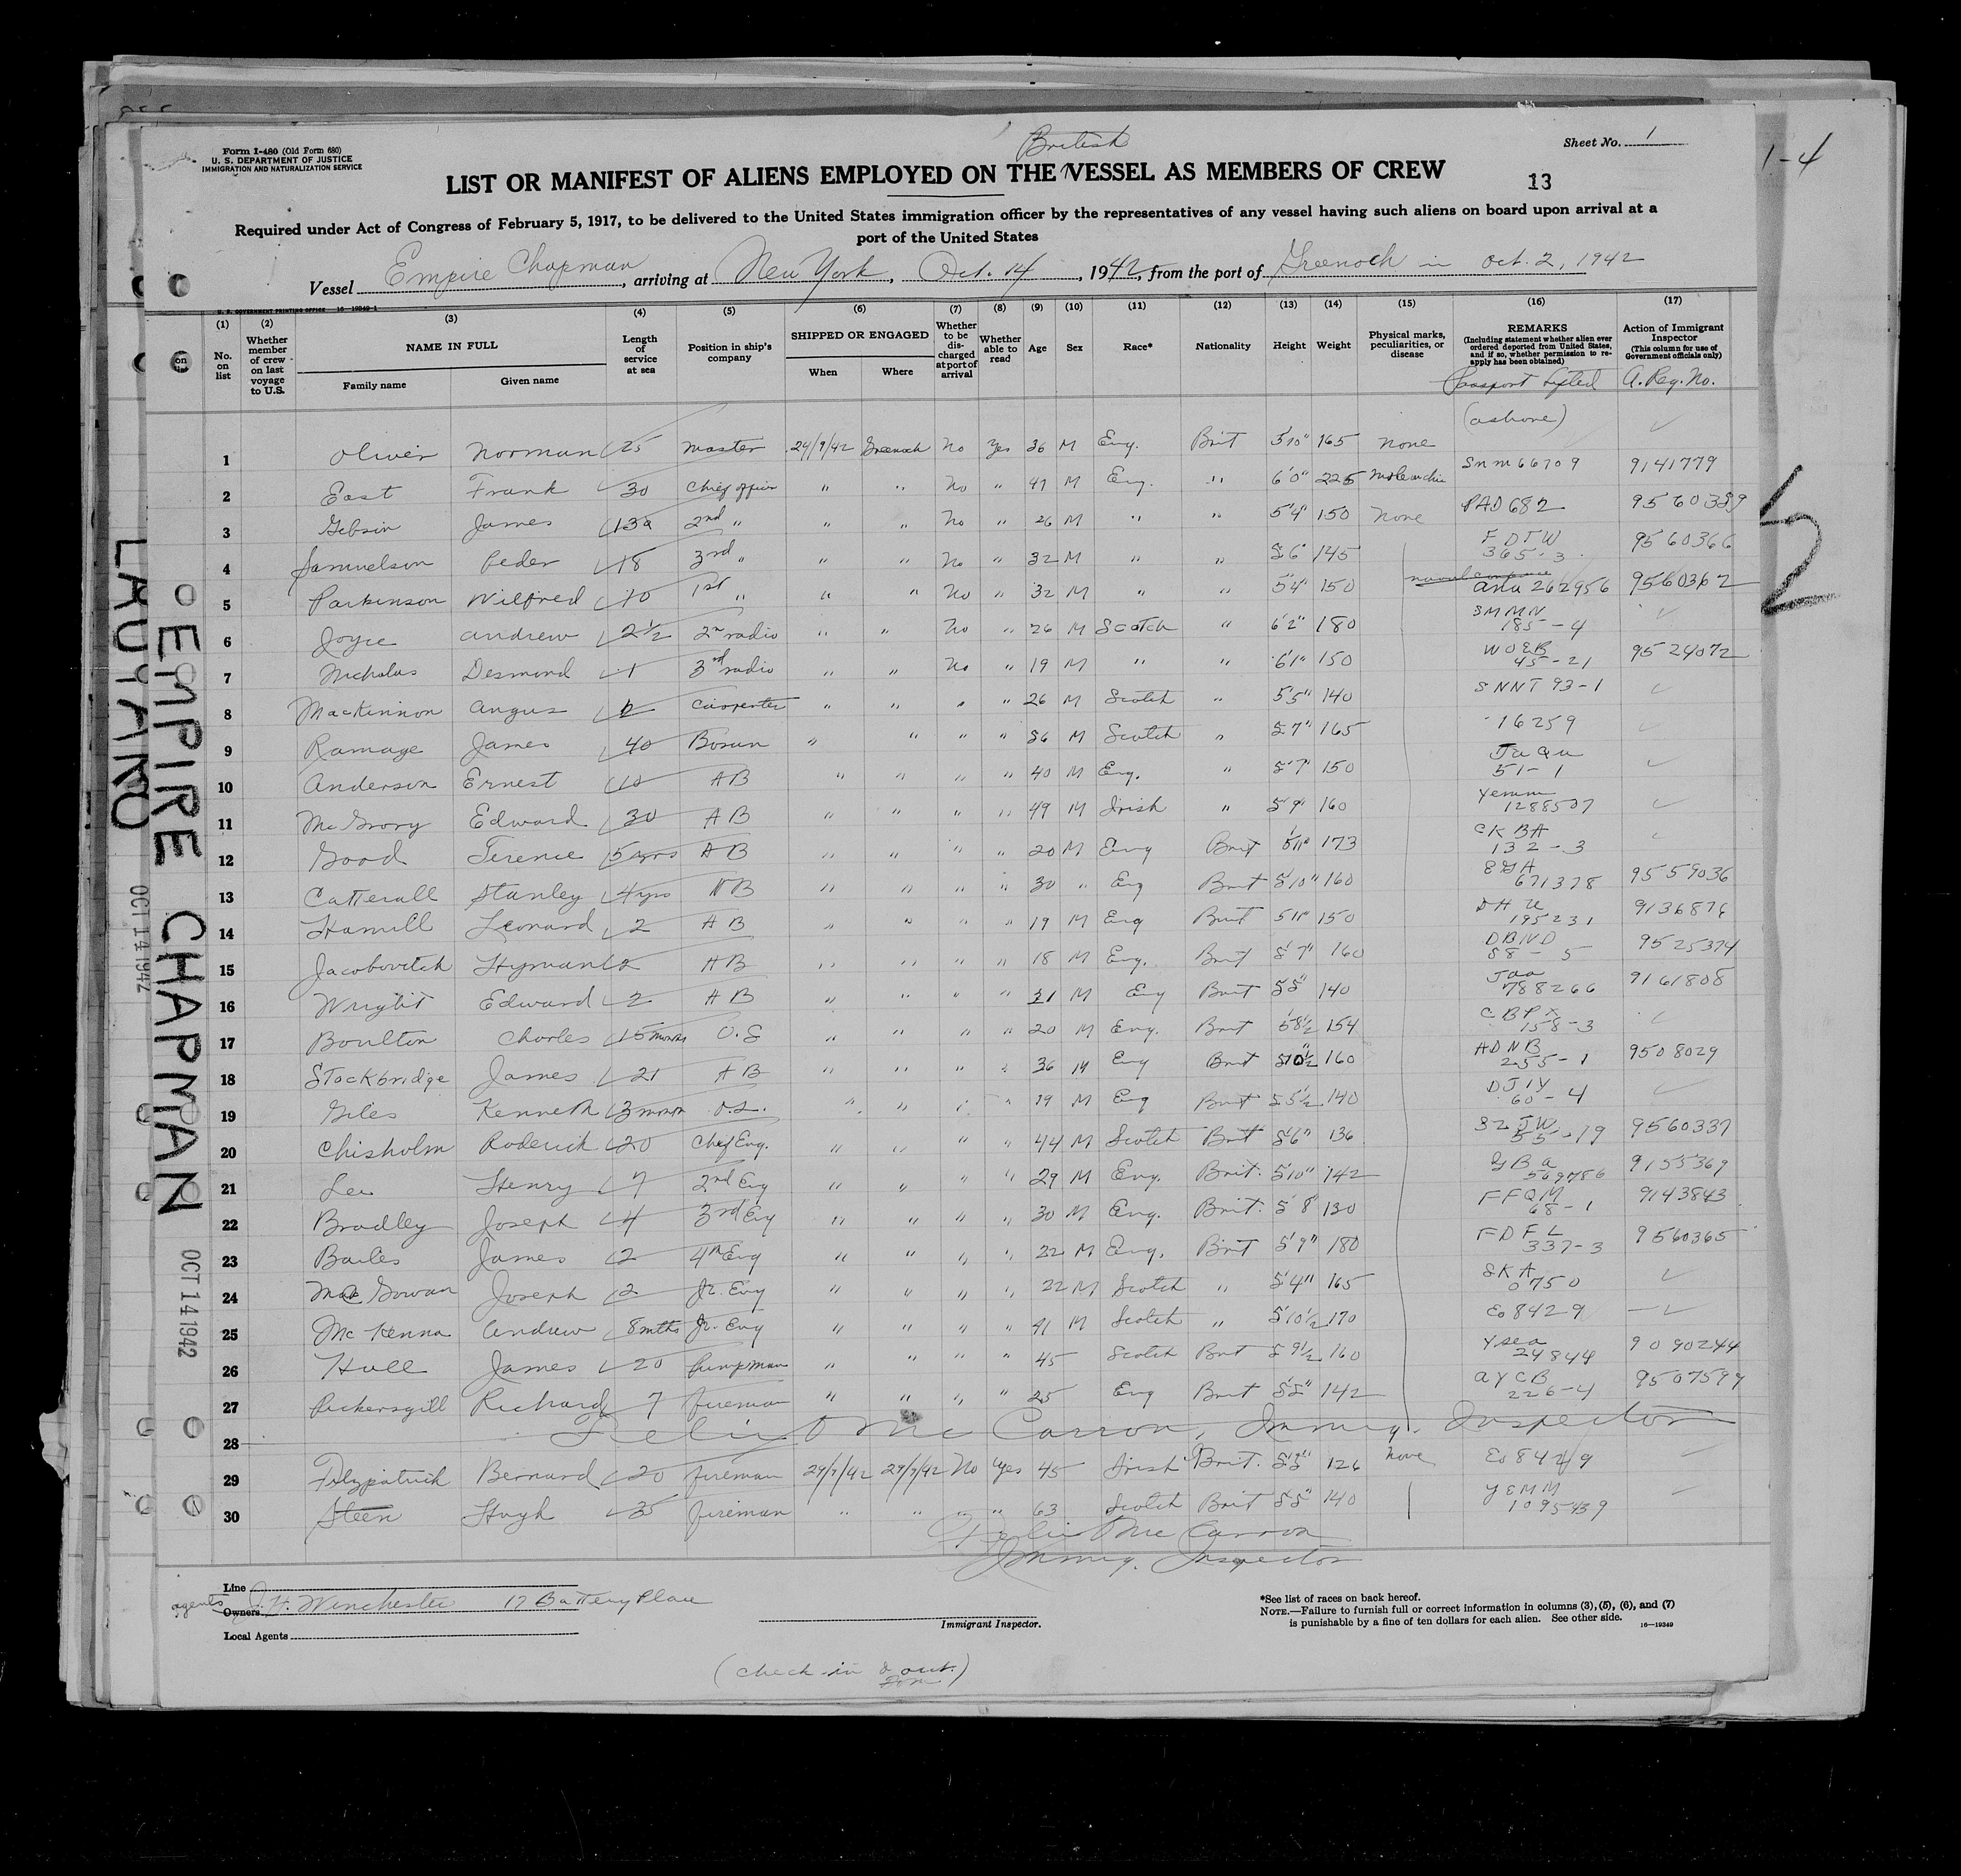 Form I-480 (Old Form 680)
U. S. DEPARTMENT OF JUSTICE
IMMIGRATION AND NATURALIZATION SERVICE
Sheet No. 1
1-4
British
LIST OR MANIFEST OF ALIENS EMPLOYED ON THE VESSEL AS MEMBERS OF CREW
13
Required under Act of Congress of February 5, 1917, to be delivered to the United States immigration officer by the representatives of any vessel having such aliens on board upon arrival at a
port of the United States
Vessel Empire Chapman, arriving at New York, Oct. 14, 1942, from the port of Greenock in Oct. 2, 1942
U. S. GOVERNMENT PRINTING OFFICE 16—19349-1
(1) (2) (3) (4) (5) (6) (7) (8) (9) (10) (11) (12) (13) (14) (15) (16) (17)
No. on list
Whether member of crew on last voyage to U.S.
NAME IN FULL
Family name Given name
Length of service at sea
Position in ship's company
SHIPPED OR ENGAGED
When Where
Whether to be discharged at port of arrival
Whether able to read
Age Sex Race* Nationality Height Weight
Physical marks, peculiarities, or disease
REMARKS
(Including statement whether alien ever ordered deported from United States, and if so, whether permission to reapply has been obtained)
Passport Lifted
Action of Immigrant Inspector
(This column for use of Government officials only)
A. Reg. No.
(ashore)
1 Oliver Norman 25 Master 29/9/42 Greenock No Yes 36 M Eng. Brit 5'10" 165 None
2 East Frank 30 Chief Officer " " No " 47 M Eng. " 6'0" 225 SMM 66709 9141779
3 Gibson James 2nd " " " No " 26 M " " 5'4" 150 None PAD 682
4 Samuelson Peder 18 3rd " " " No " 32 M " " 5'6" 145 FDJW 365-3 9560366
5 Parkinson Wilfred 10 1st " " " No " 32 M " " 5'4" 150 262956 9560362
6 Joyce Andrew 2½ 2nd radio " " No " 26 M Scotch " 6'2" 180 SMMN 185-4
7 Nicholas Desmond 1 3rd radio " " No " 19 M " " 6'1" 150 WOEB 45-21 9524072
8 MacKinnon Angus Carpenter " " " " 26 M Scotch " 5'5" 140 SNNT 93-1
9 Ramage James 40 Bosun " " " " 56 M Scotch " 5'7" 165 16259
10 Anderson Ernest 10 AB " " " " 40 M Eng. " 5'7" 150 51-1
11 McGrory Edward 30 AB " " " " 49 M Irish " 5'9" 160 1288507
12 Good Terence 5 yrs AB " " " " 20 M Eng Brit 5'11" 173 CKBA 132-3
13 Catterall Stanley 4 yrs AB " " " " 30 " Eng Brit 5'10" 160 671378 9559036
14 Hamill Leonard 2 AB " " " " 19 M Eng Brit 5'11" 150 195231 9136876
15 Jacobovitch Hyman 2 AB " " " " 18 M Eng. Brit 5'7" 160 DBND 58-5 9525374
16 Wright Edward 2 AB " " " " M Eng Brit 5'5" 140 788266 9161808
17 Boulton Charles 15 months O.S " " " " 20 M Eng. Brit 5'8½ 154 158-3
18 Stockbridge James 21 AB " " " " 36 M Eng Brit 5'10½ 160 ADNB 255-1 9508029
19 Giles Kenneth 3 months O.S. " " " " 19 M Eng Brit 5'5½ 140 DJIY 60-4
20 Chisholm Roderick 20 Chief Eng. " " " " 44 M Scotch Brit 5'6" 136 55-19 9560337
21 Lee Henry 7 2nd Eng " " " " 29 M Eng. Brit. 5'10" 142 569786 9155369
22 Bradley Joseph 4 3rd Eng " " " " 30 M Eng. Brit. 5'8" 130 FFQM 68-1 9143843
23 James 2 4th Eng " " " " 22 M Eng. Brit 5'9" 180 FDFL 337-3 9560365
24 Gowan Joseph 2 Jr. Eng " " " " 22 M Scotch " 5'4" 165 SKA 0750
25 McKenna Andrew 8 mths Jr. Eng " " " " 41 M Scotch " 5'10½ 170 Eo 8429
26 Hull James 20 Pumpman " " " " 45 Scotch Brit 5'9½ 160 24844 9090244
27 Pickersgill Richard 7 Fireman " " " " 25 Eng Brit 5'5" 142 AYCB 226-4
28 Felix McCarron, Immig. Inspector
29 Fitzpatrick Bernard 20 Fireman 29/9/42 29/9/42 No Yes 45 Irish Brit. 126 None Eo 8429
30 Steen Hugh 35 Fireman " " " " 63 Scotch Brit 5'5" 140 YEMM 1095439
Felix McCarron
Immig. Inspector
Line
agents Owners J. H. Winchester 17 Battery Place
Local Agents
Immigrant Inspector.
*See list of races on back hereof.
NOTE.—Failure to furnish full or correct information in columns (3), (5), (6), and (7)
is punishable by a fine of ten dollars for each alien. See other side. 16—19349
(check in & out.)
EMPIRE CHAPMAN
OCT 14 1942
OCT 14 1942